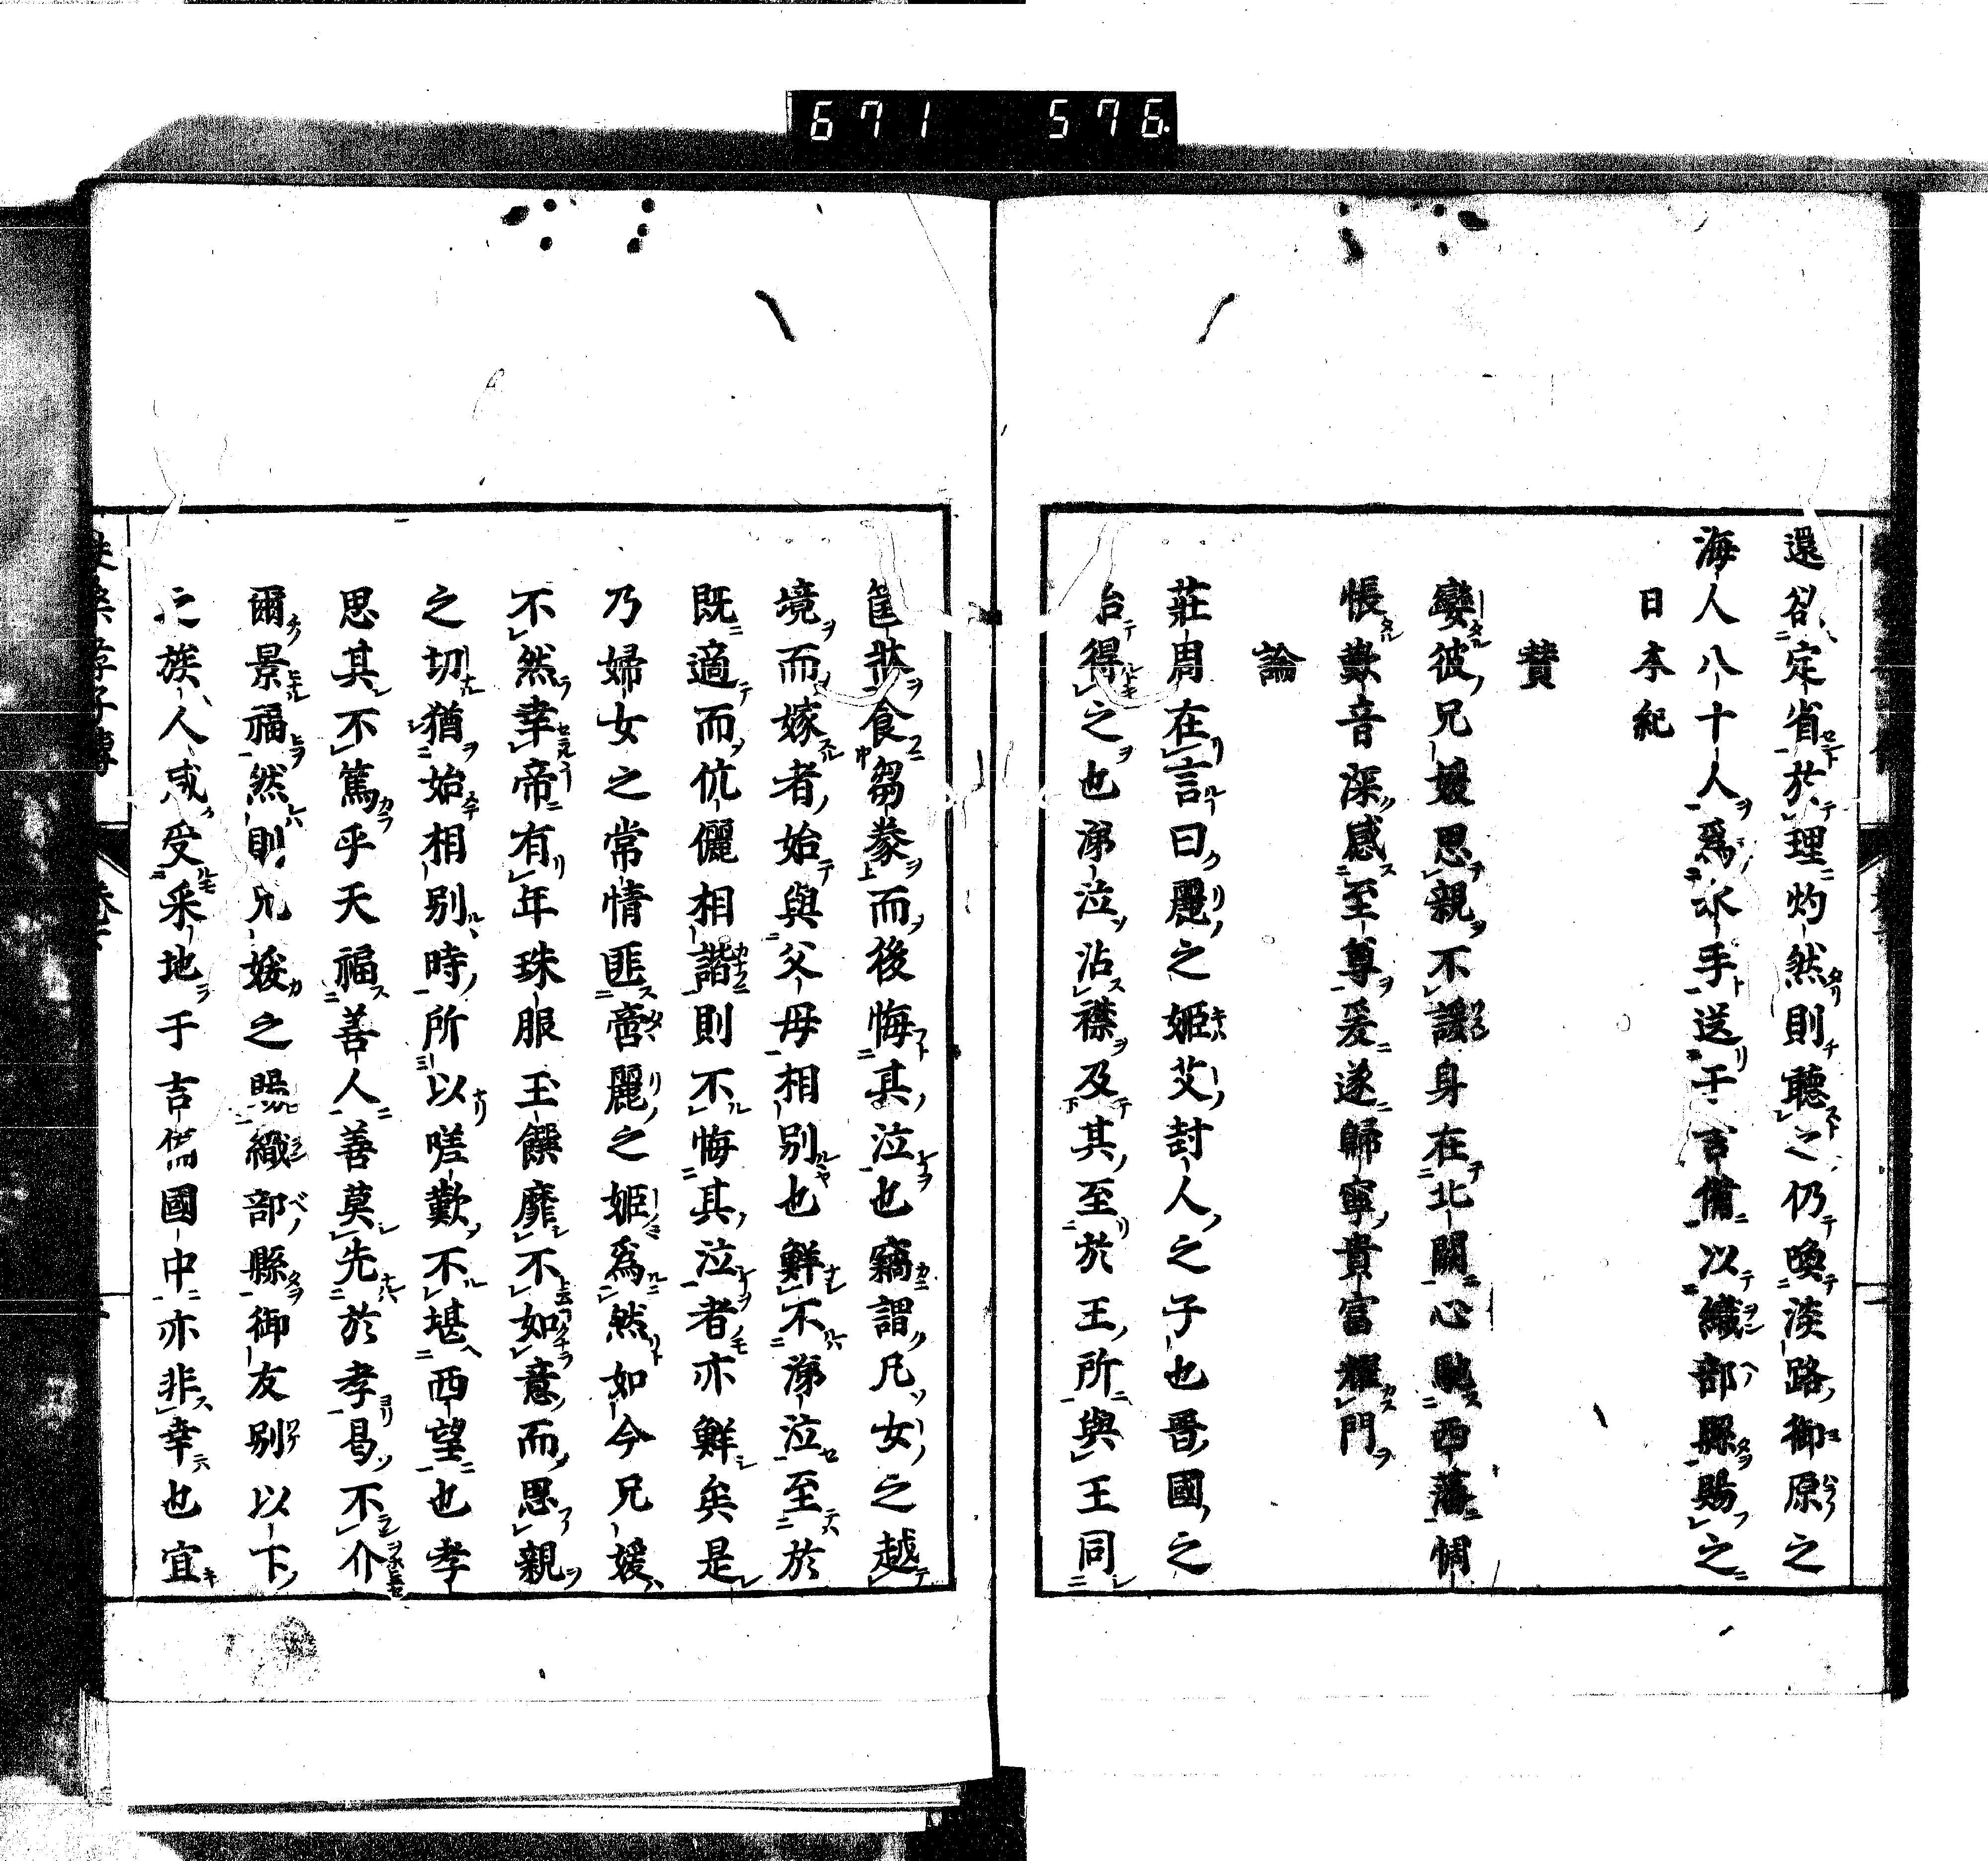 671 576
還欲定省於理灼然則聽之仍喚淡路御原之
海人八十人爲水手送于吉備以織部縣賜之
日本紀
贊
孌彼兄媛思親不諼身在北闕心馳西藩惆
悵歎音深感至尊爰遂歸寧貴富耀門
論
莊周在言曰麗之姬艾封人之子也晋國之
始得之也涕泣沾襟及其至於王所與王同
筐牀食芻豢而後悔其泣也竊謂凡女之越
境而嫁者始與父母相別也鮮不涕泣至於
既適而伉儷相諧則不悔其泣者亦鮮矣是
乃婦女之常情匪啻麗之姬爲然如今兄媛
不然幸帝有年珠服玉饌靡不如意而思親
之切猶始相別時所以嗟歎不堪西望也孝
思其不篤乎天福善人善莫先於孝曷不介
爾景福然則兄媛之賜織部縣御友別以下
之族人咸受采地于吉備國中亦非幸也宜
孝子傳